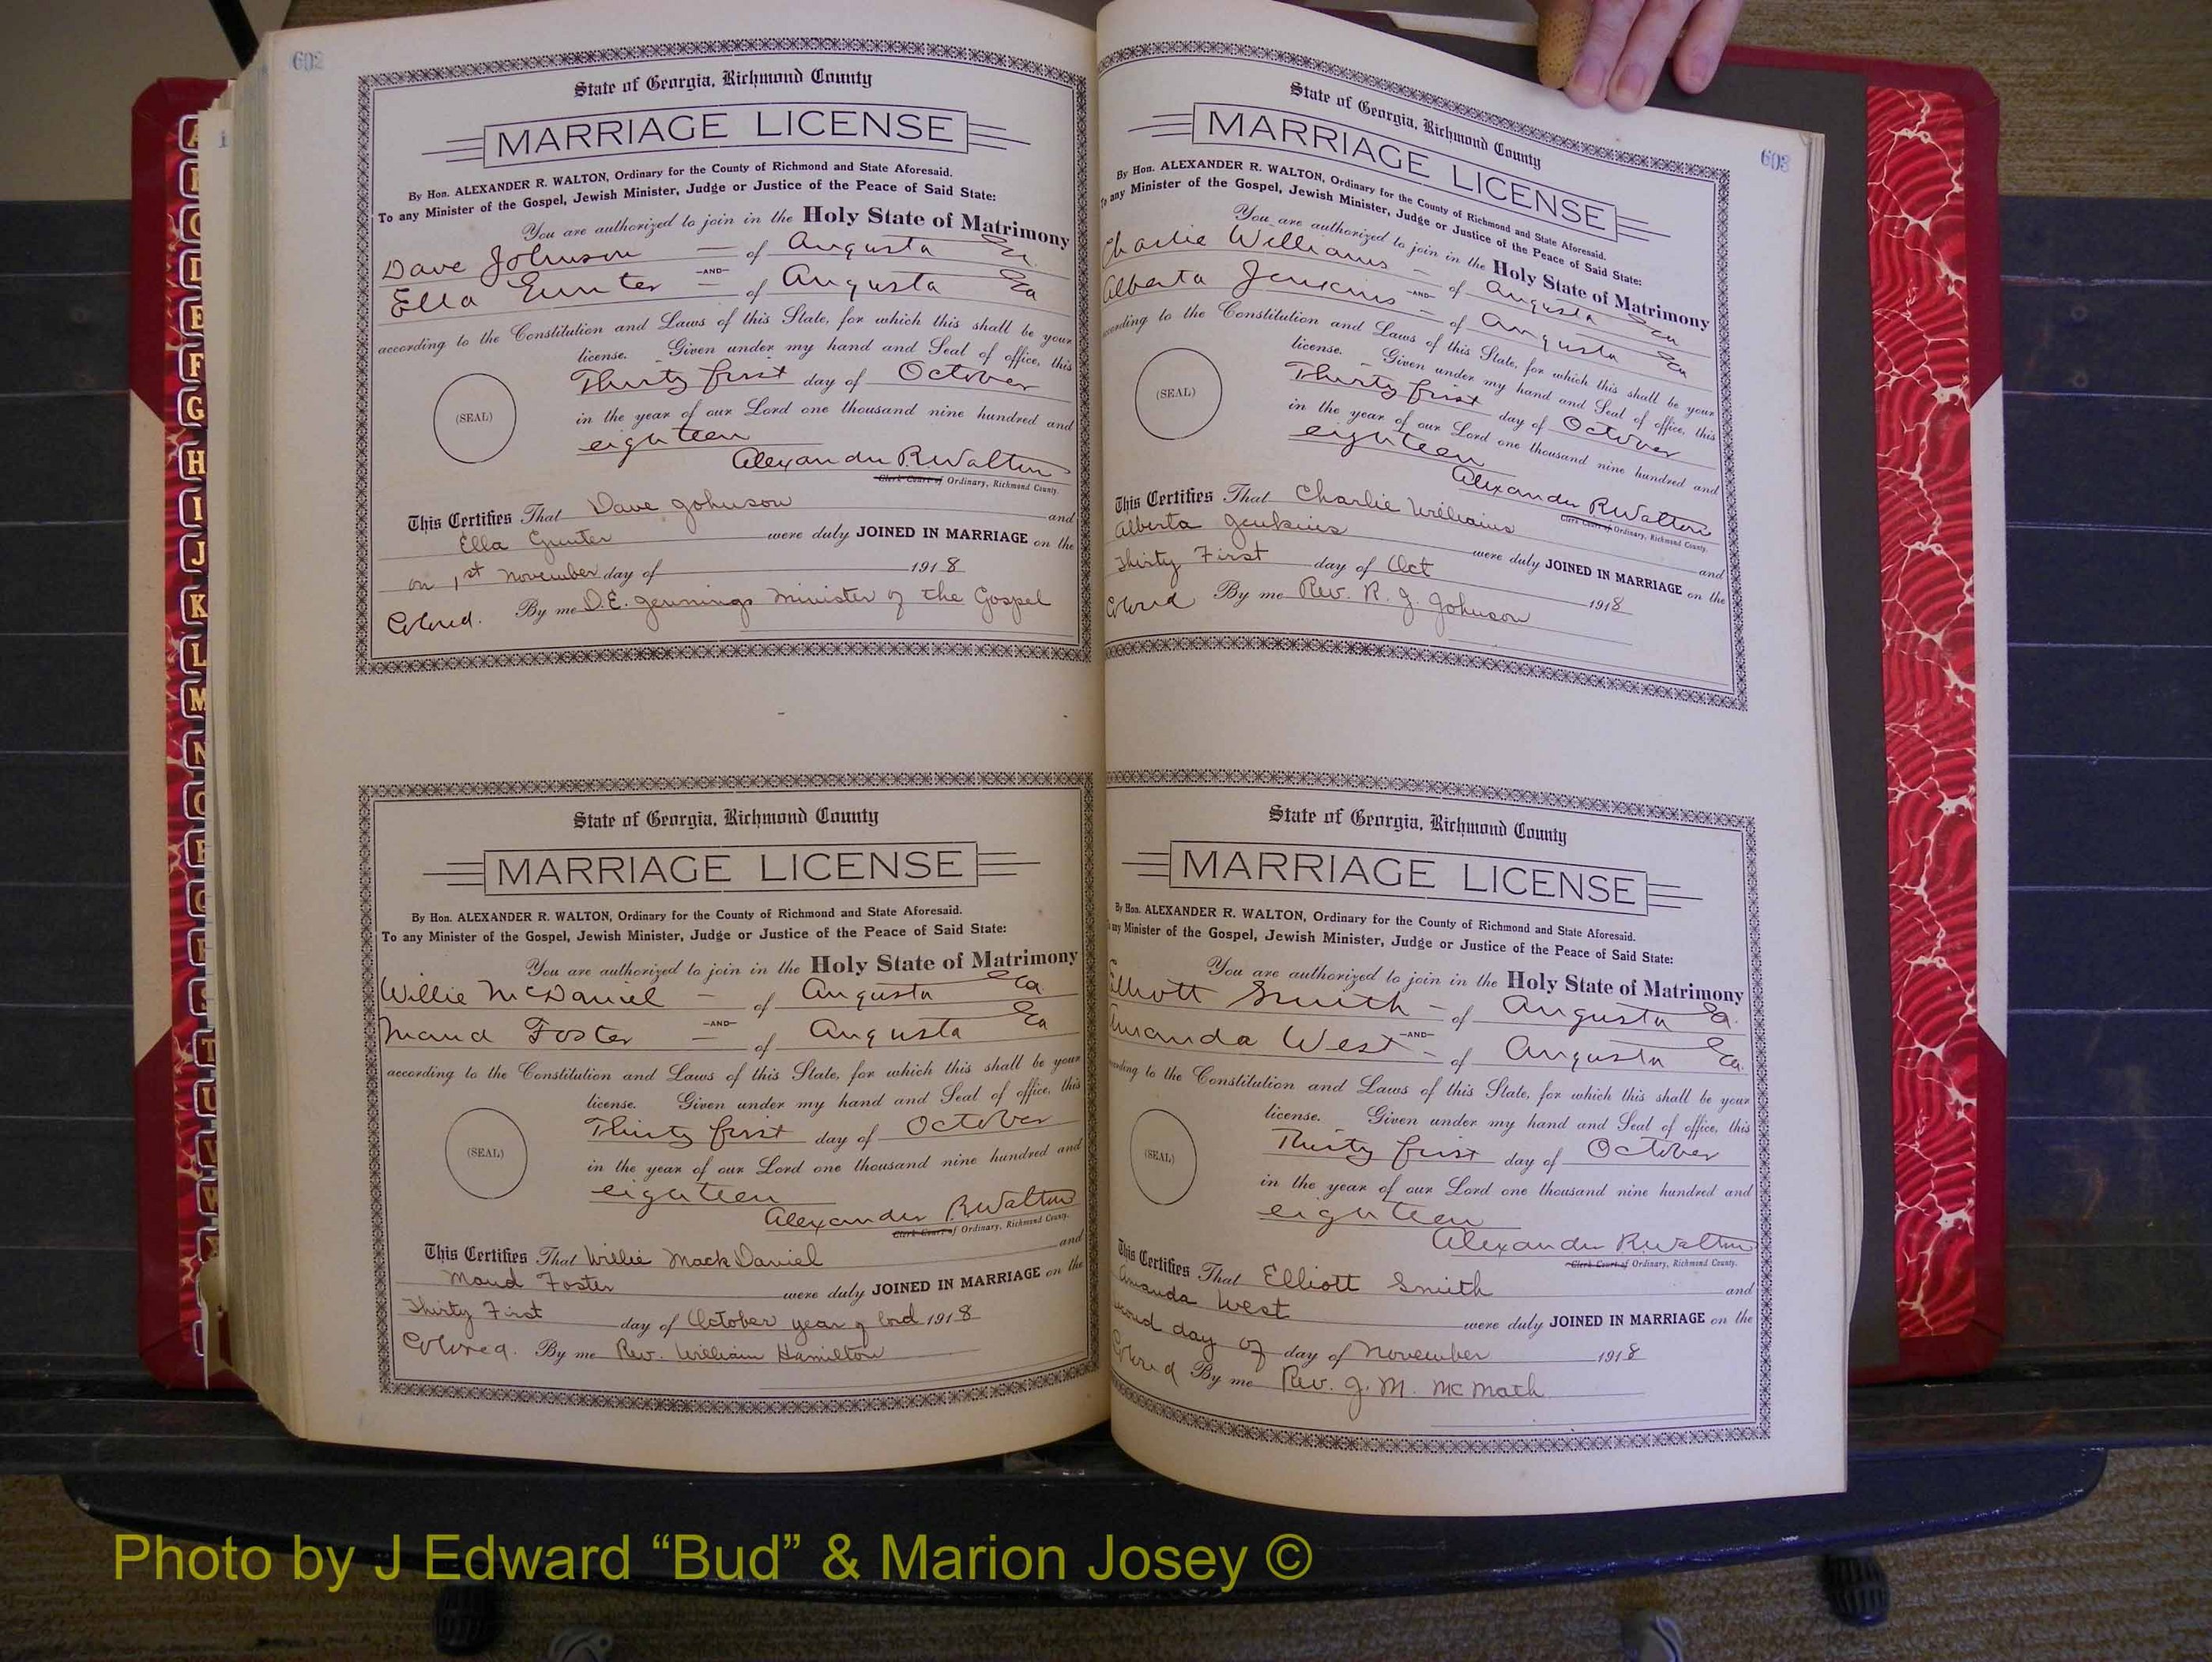 602
State of Georgia, Richmond County
MARRIAGE LICENSE
By Hon. ALEXANDER R. WALTON, Ordinary for the County of Richmond and State Aforesaid.
To any Minister of the Gospel, Jewish Minister, Judge or Justice of the Peace of Said State:
You are authorized to join in the Holy State of Matrimony
Dave Johnson — of Augusta Ga.
—AND—
Ella Gunter — of Augusta Ga
according to the Constitution and Laws of this State, for which this shall be your
license. Given under my hand and Seal of office, this
Thirty first day of October
(SEAL)
in the year of our Lord one thousand nine hundred and
eighteen
Alexander R. Walton
Clerk Court of Ordinary, Richmond County.
This Certifies That Dave Johnson and
Ella Gunter were duly JOINED IN MARRIAGE on the
on 1st November day of 1918
Colored. By me D.E. Jennings Minister of the Gospel
State of Georgia, Richmond County
MARRIAGE LICENSE
By Hon. ALEXANDER R. WALTON, Ordinary for the County of Richmond and State Aforesaid.
To any Minister of the Gospel, Jewish Minister, Judge or Justice of the Peace of Said State:
You are authorized to join in the Holy State of Matrimony
Willie McDaniel — of Augusta Ga.
—AND—
Maud Foster — of Augusta Ga
according to the Constitution and Laws of this State, for which this shall be your
license. Given under my hand and Seal of office, this
Thirty first day of October
(SEAL)
in the year of our Lord one thousand nine hundred and
eighteen
Alexander R. Walton
Clerk Court of Ordinary, Richmond County.
This Certifies That Willie Mack Daniel and
Maud Foster were duly JOINED IN MARRIAGE on the
Thirty First day of October year of lord 1918
Colored. By me Rev. William Hamilton
603
State of Georgia, Richmond County
MARRIAGE LICENSE
By Hon. ALEXANDER R. WALTON, Ordinary for the County of Richmond and State Aforesaid.
To any Minister of the Gospel, Jewish Minister, Judge or Justice of the Peace of Said State:
You are authorized to join in the Holy State of Matrimony
Charlie Williams — of Augusta Ga
—AND—
Alberta Jenkins — of Augusta Ga
according to the Constitution and Laws of this State, for which this shall be your
license. Given under my hand and Seal of office, this
Thirty first day of October
(SEAL)
in the year of our Lord one thousand nine hundred and
eighteen
Alexander R. Walton
Clerk Court of Ordinary, Richmond County.
This Certifies That Charlie Williams and
Alberta Jenkins were duly JOINED IN MARRIAGE on the
Thirty First day of Oct 1918
Colored By me Rev. R. J. Johnson
State of Georgia, Richmond County
MARRIAGE LICENSE
By Hon. ALEXANDER R. WALTON, Ordinary for the County of Richmond and State Aforesaid.
any Minister of the Gospel, Jewish Minister, Judge or Justice of the Peace of Said State:
You are authorized to join in the Holy State of Matrimony
Elliott Smith — of Augusta Ga.
—AND—
Amanda West — of Augusta Ga.
according to the Constitution and Laws of this State, for which this shall be your
license. Given under my hand and Seal of office, this
Thirty first day of October
(SEAL)
in the year of our Lord one thousand nine hundred and
eighteen
Alexander R. Walton
Clerk Court of Ordinary, Richmond County.
This Certifies That Elliott Smith and
Amanda West were duly JOINED IN MARRIAGE on the
second day of day of November 1918
Colored By me Rev. J. M. McMath
Photo by J Edward “Bud” & Marion Josey ©